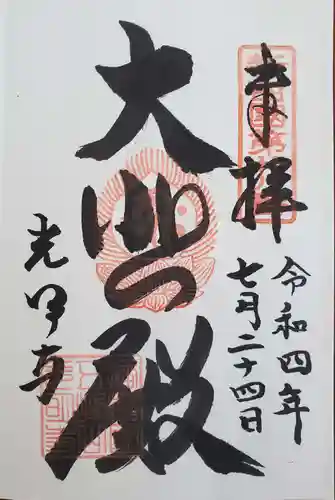 奉拝
令和四年
七月二十四日
大悲殿
光明寺